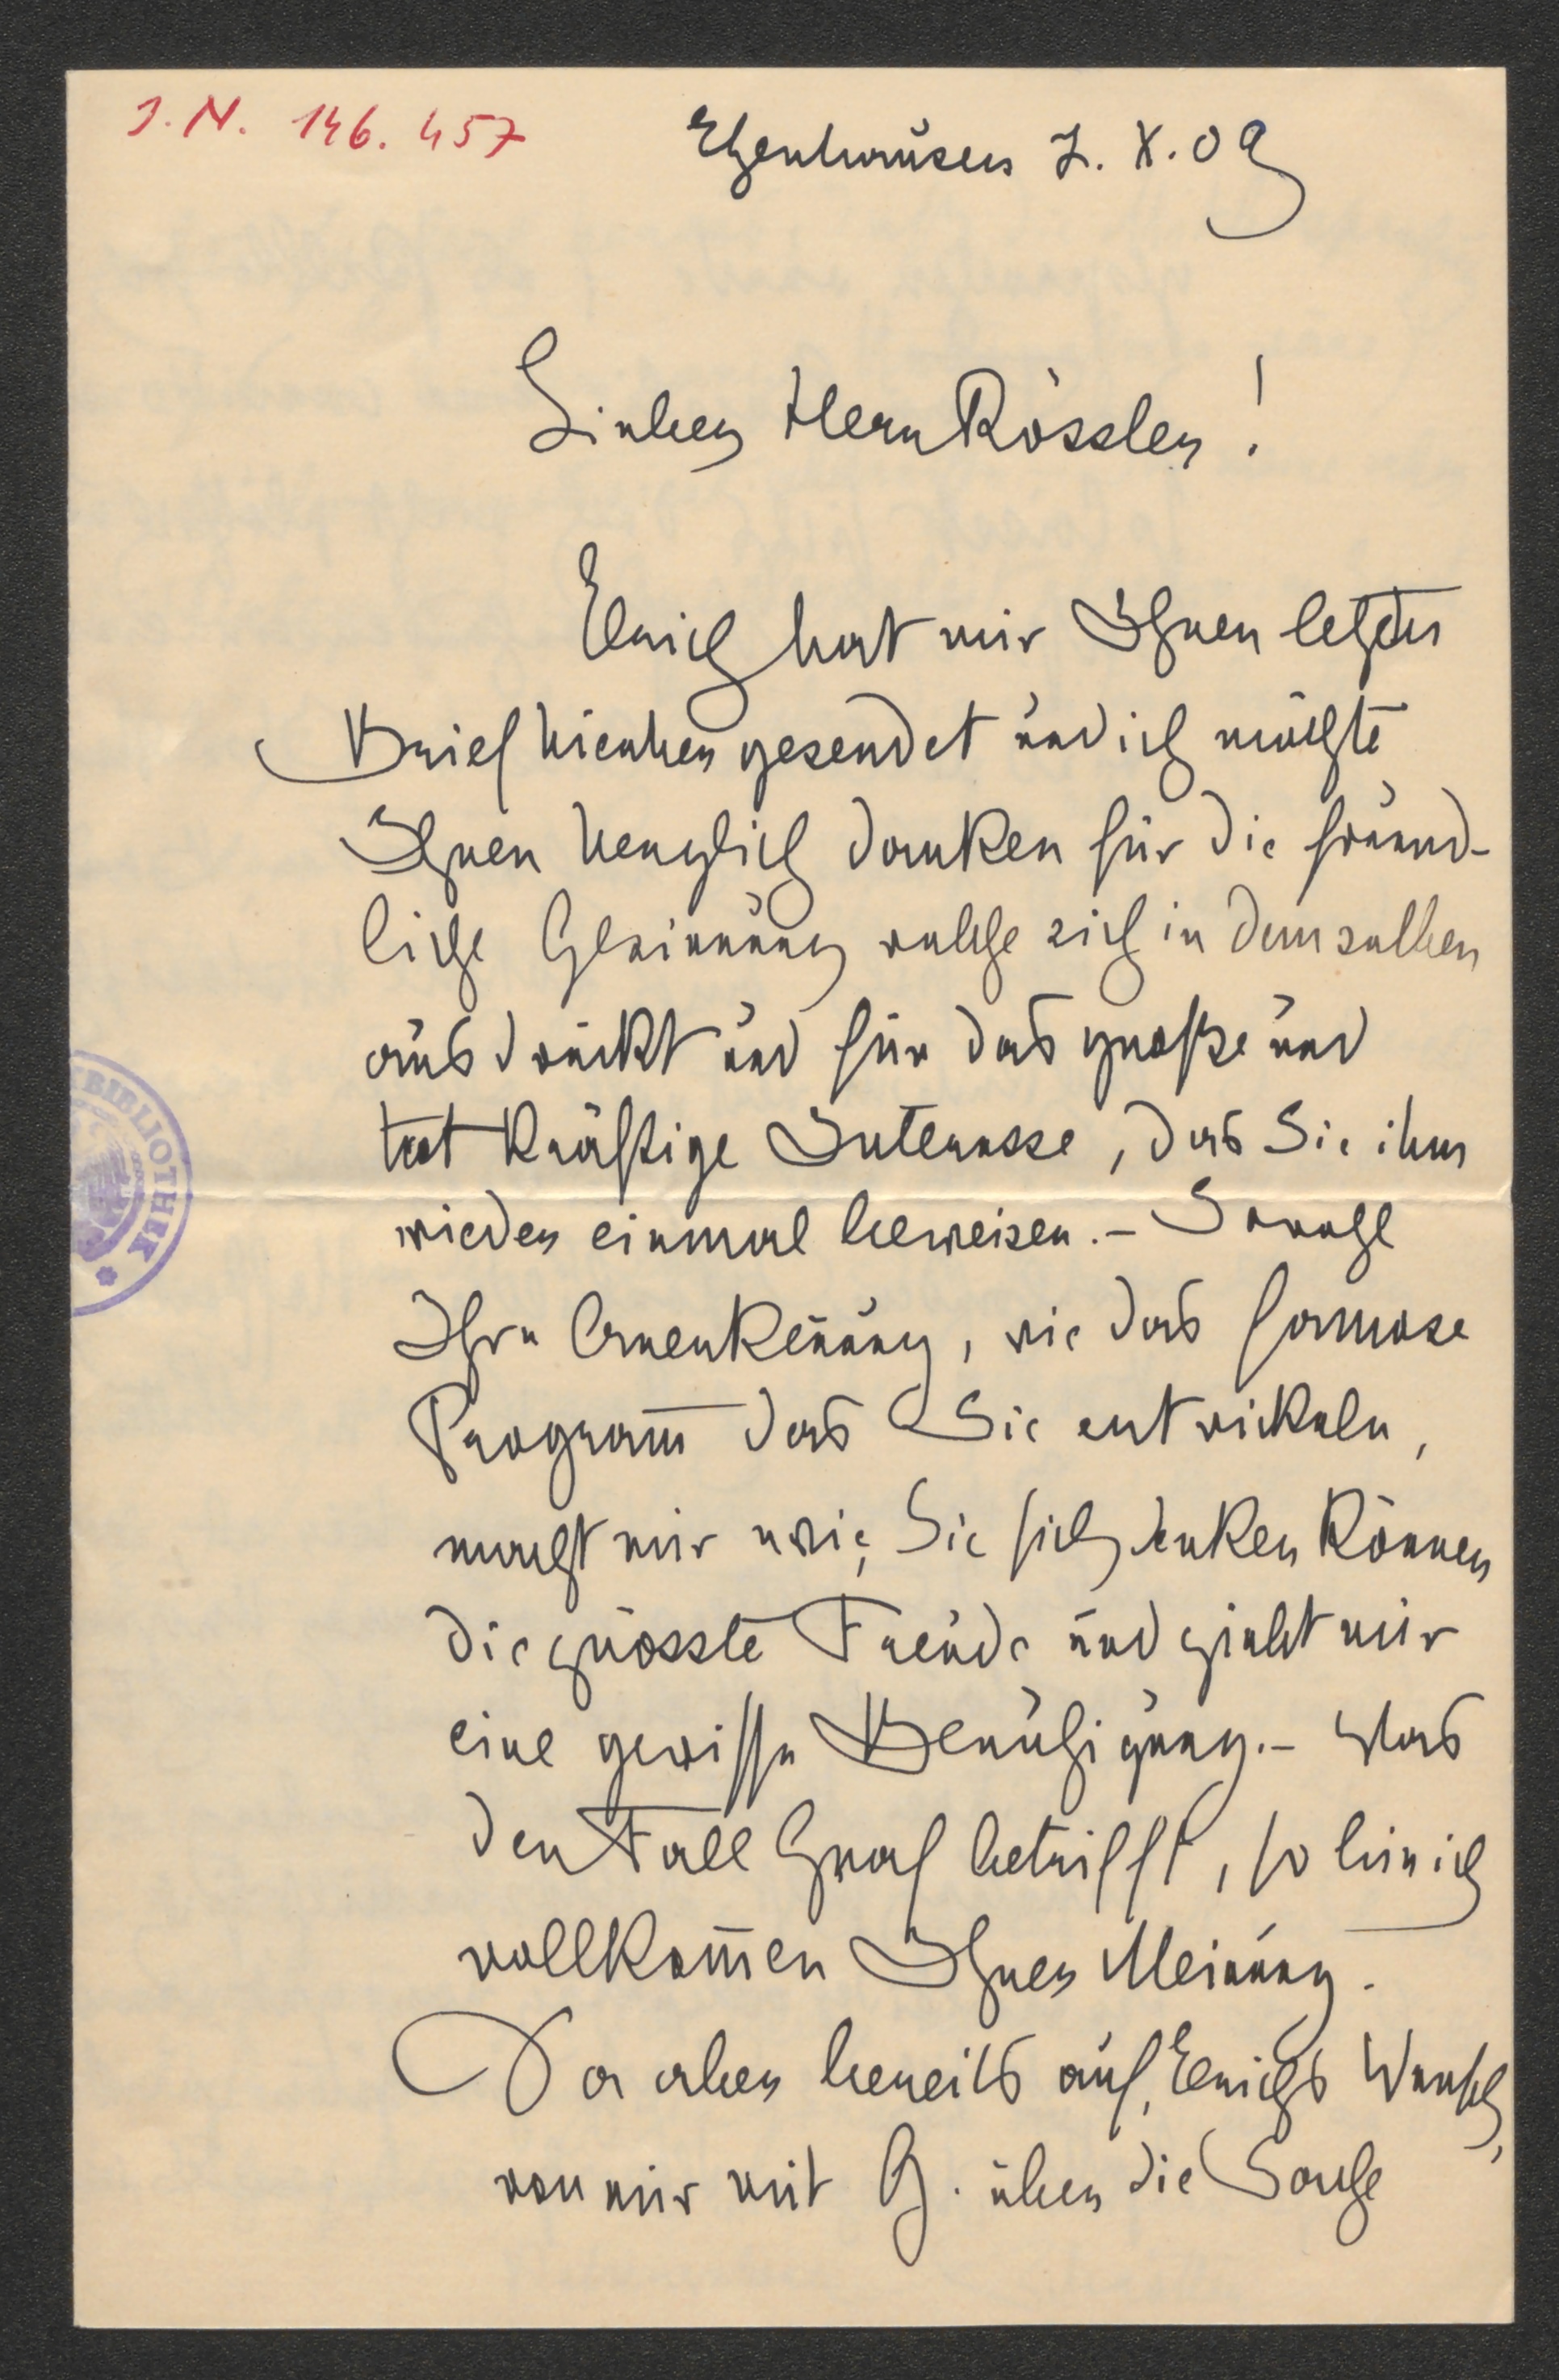 J. N. 146. 457
Ebenhausen 7. X. 09
Lieber Herr Rössler!
Erich hat mir Ihren letzten
Brief hierher gesendet und ich möchte
Ihnen herzlich danken für die freund-
liche Gesinnung welche sich in demselben
ausdrückt und für das große und
tatkräftige Interesse, das Sie ihm
wieder einmal beweisen. – Sowohl
Ihre Anerkennung, wie das famose
Program̅ das Sie entwickeln,
macht mir wie Sie sich denken können
die grösste Freude und giebt mir
eine gewisse Beruhigung. – Was
den Fall Graf betrifft, so bin ich
vollkom̅en Ihrer Meinung.
Da aber bereits auf, Erichs Wunsch,
von mir mit G. über die Sache
BIBLIOTHEK